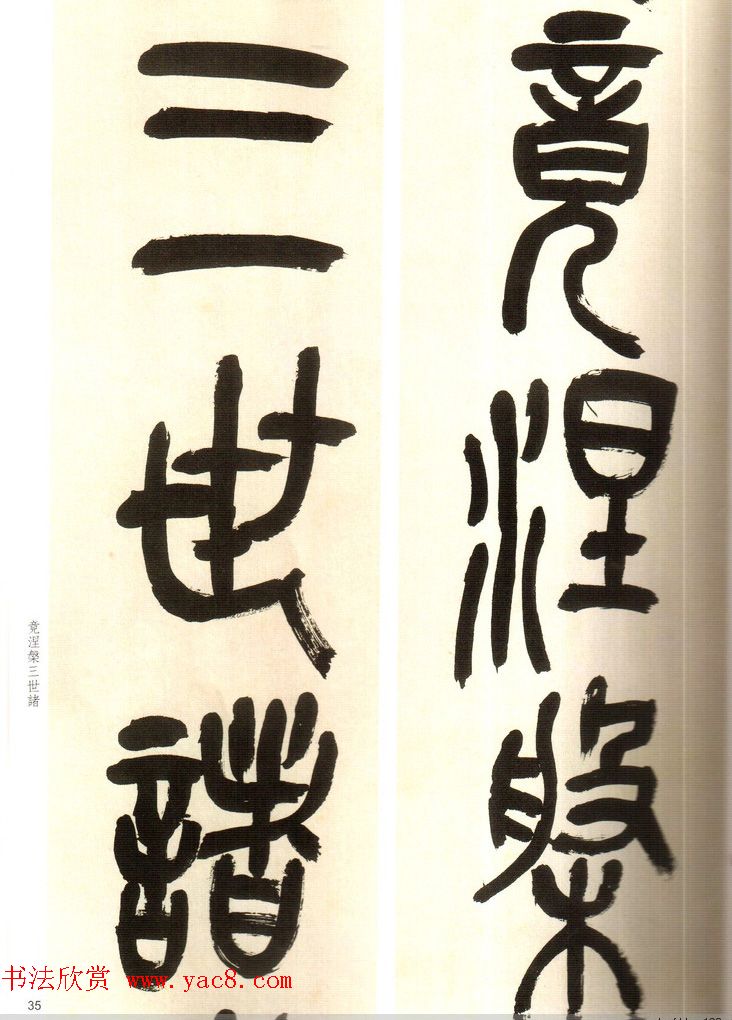 竟涅槃
三世諸
竟涅槃三世諸
书法欣赏 www.yac8.com
35